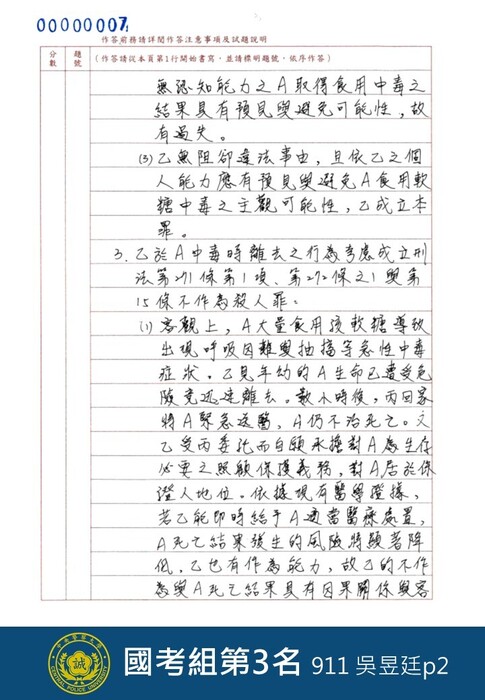 000000071
作答前務請詳閱作答注意事項及試題說明
分數
題號
(作答請從本頁第1行開始書寫，並請標明題號，依序作答)
無認知能力之A取得食用中毒之
結果具有預見與避免可能性，故
有過失。
(3)乙無阻卻違法事由，且依乙之個
人能力應有預見與避免A食用軟
糖中毒之主觀可能性，乙成立本
罪。
3.乙於A中毒時離去之行為考慮成立刑
法第271條第1項、第272條之1與第
15條不作為殺人罪：
(1)客觀上，A大量食用該軟糖導致
出現呼吸困難與抽搐等急性中毒
症狀。乙見年幼的A生命已遭受危
險竟迅速離去。數小時後，丙回家
將A緊急送醫，A仍不治死亡。又
乙受丙委託而自願承擔對A為生存
必要之照顧保護義務，對A居於保
證人地位。依據現有醫學證據，
若乙能即時給予A適當醫療處置，
A死亡結果發生的風險將顯著降
低。乙也有作為能力，故乙的不作
為與A死亡結果具有因果關係與客
中央警察大學
誠
CENTRAL POLICE UNIVERSITY
國考組第3名 911 吳昱廷p2